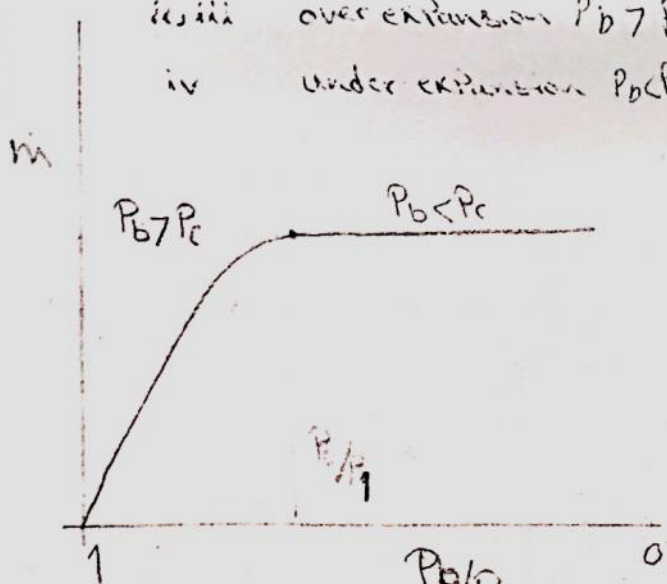 ii, iii over expansion Pb > P
iv under expansion Pb < P
ṁ
Pb > Pc Pb < Pc
Pc/P1
1 Pb/P 0